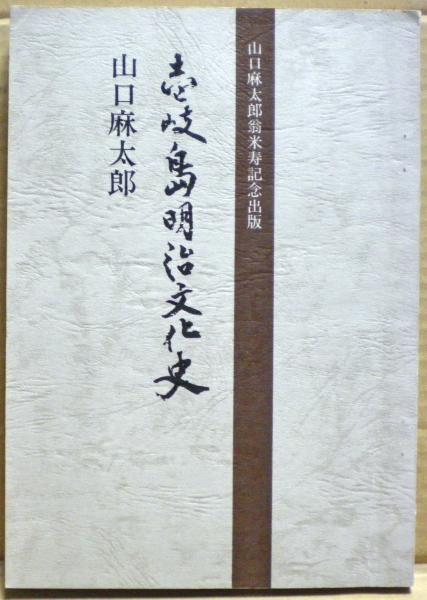 山口麻太郎翁米寿記念出版
壱岐島明治文化史
山口麻太郎